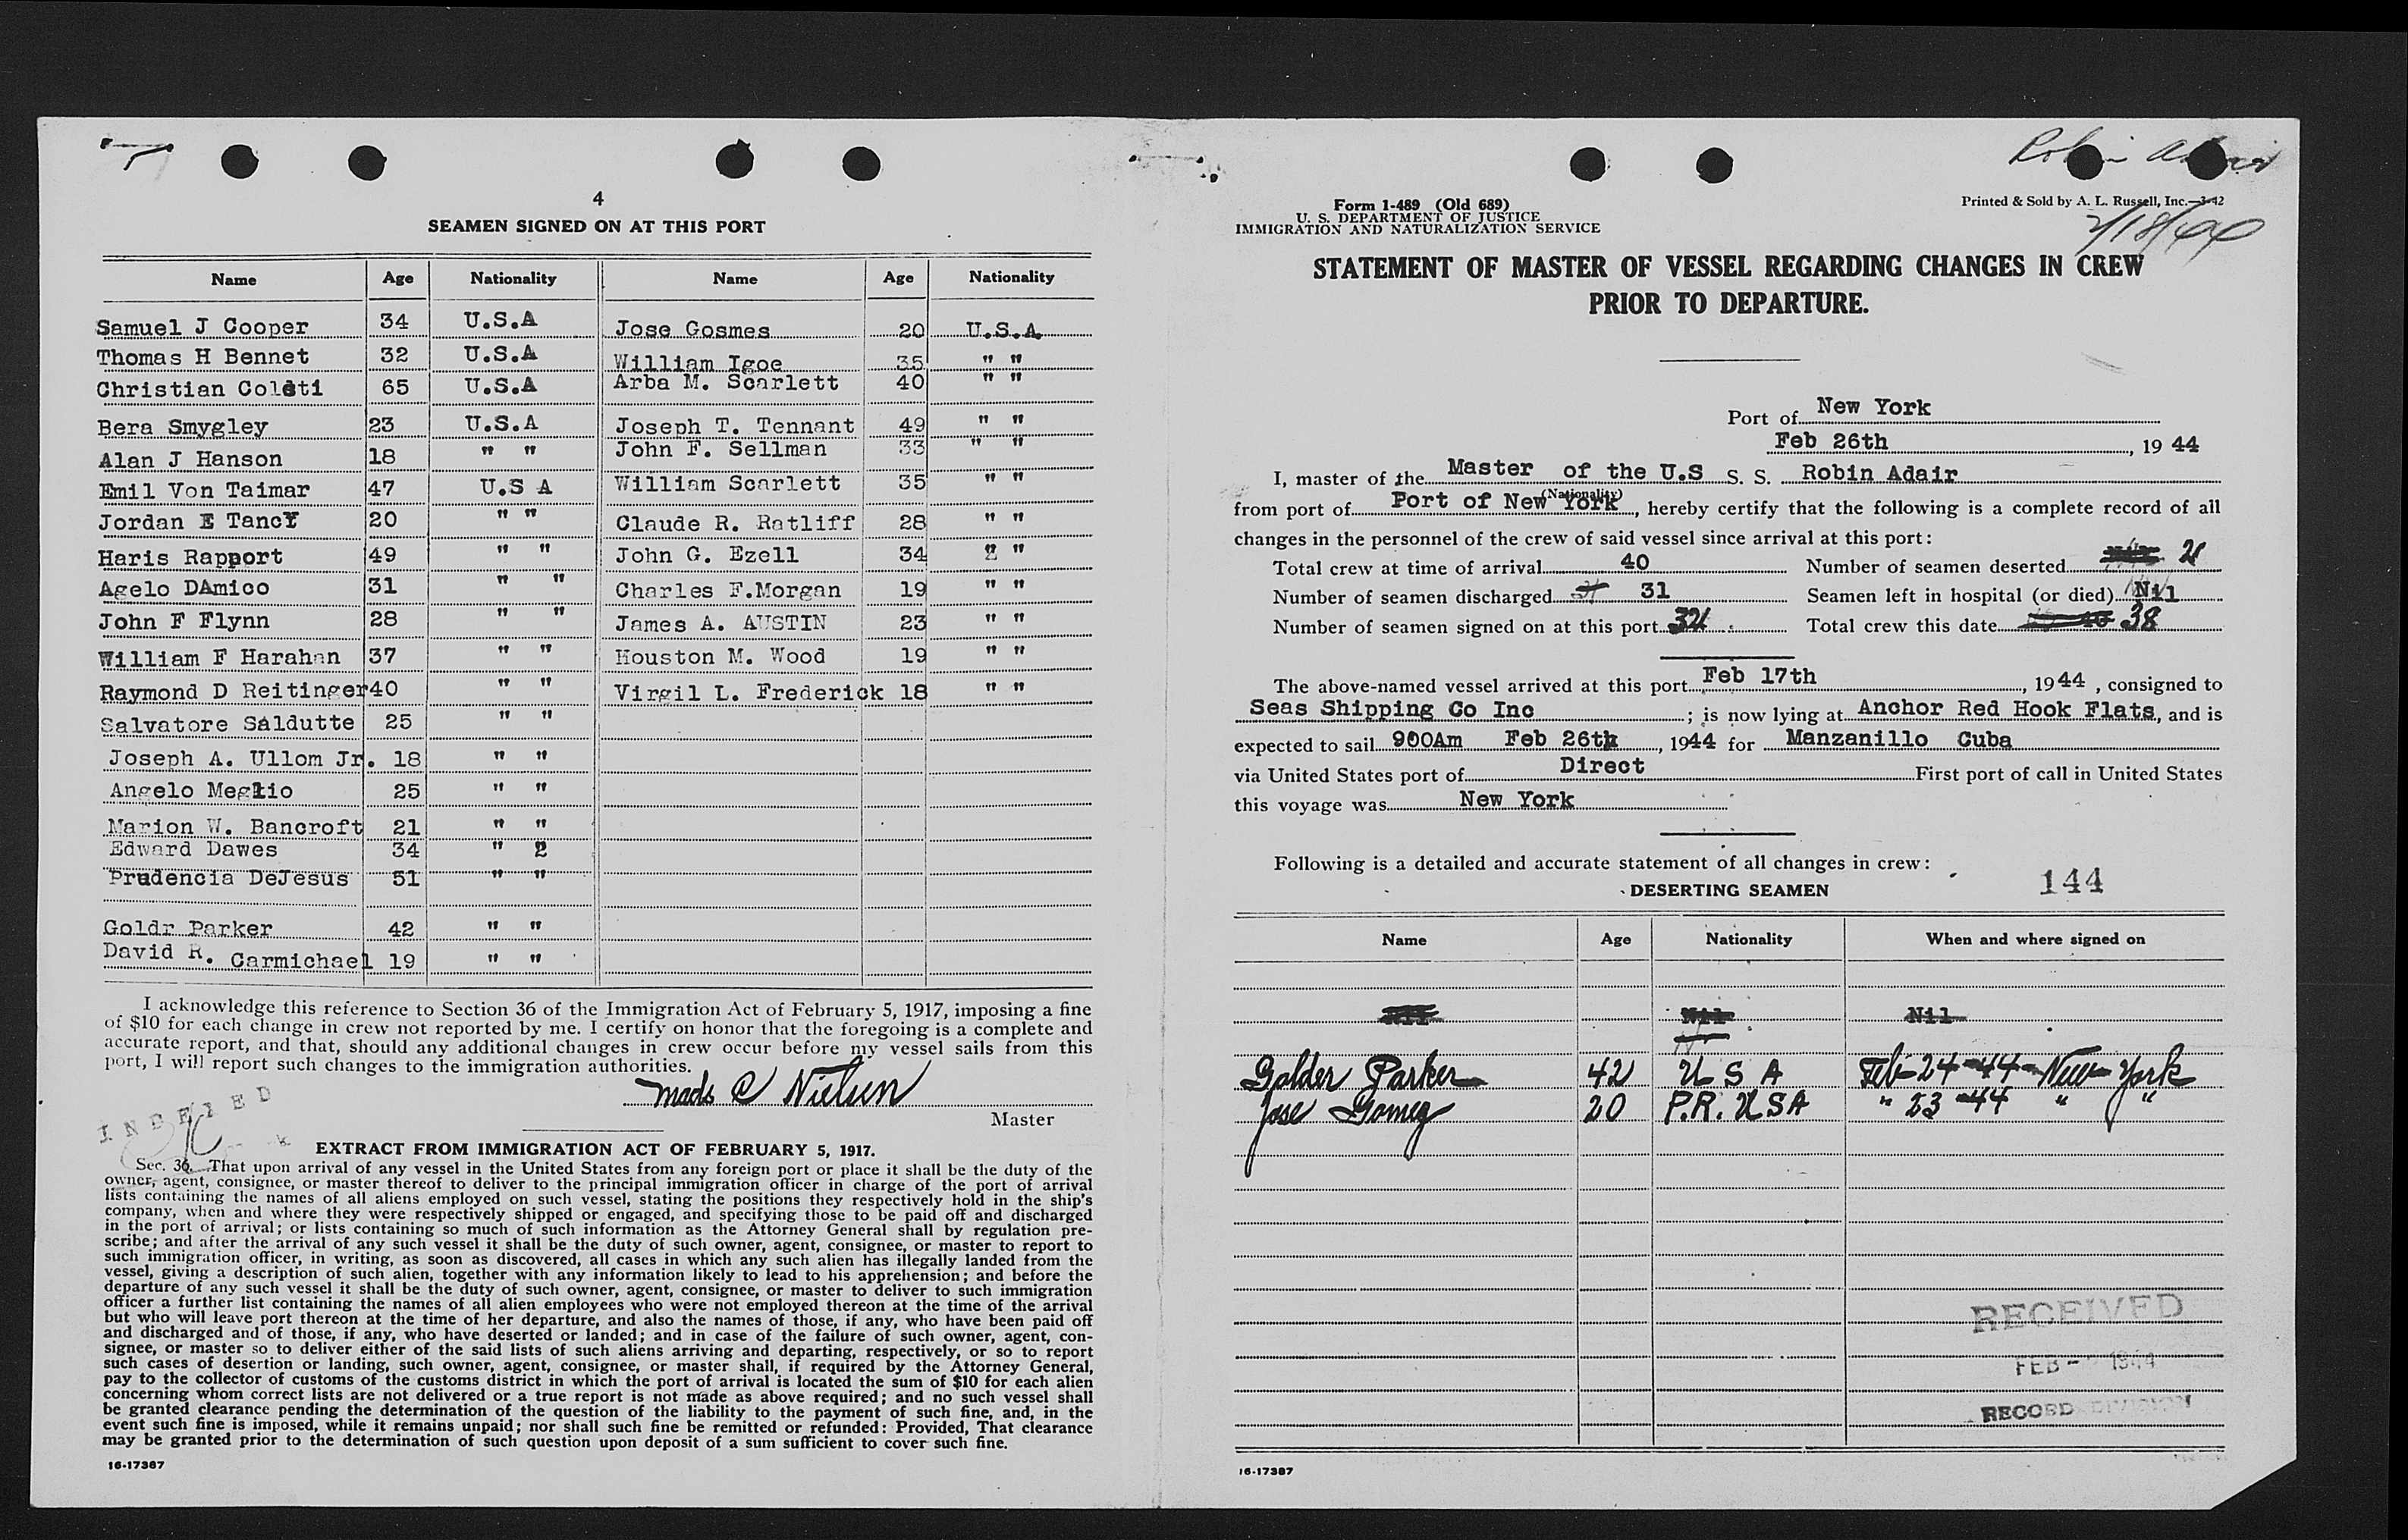 4
SEAMEN SIGNED ON AT THIS PORT
Name Age Nationality Name Age Nationality
Samuel J Cooper 34 U.S.A Jose Gosmes 20 U.S.A.
Thomas H Bennet 32 U.S.A William Igoe 35 " "
Christian Coleti 65 U.S.A Arba M. Scarlett 40 " "
Bera Smygley 23 U.S.A Joseph T. Tennant 49 " "
Alan J Hanson 18 " " John F. Sellman 33 " "
Emil Von Taimar 47 U.S A William Scarlett 35 " "
Jordan E Tancy 20 " " Claude R. Ratliff 28 " "
Haris Rapport 49 " " John G. Ezell 34 2 "
Agelo DAmico 31 " " Charles F.Morgan 19 " "
John F Flynn 28 " " James A. AUSTIN 23 " "
William F Harahan 37 " " Houston M. Wood 19 " "
Raymond D Reitinger 40 " " Virgil L. Frederick 18 " "
Salvatore Saldutte 25 " "
Joseph A. Ullom Jr. 18 " "
Angelo Meglio 25 " "
Marion W. Bancroft 21 " "
Edward Dawes 34 " 2
Prudencia DeJesus 51 " "
Goldr Parker 42 " "
David R. Carmichael 19 " "
I acknowledge this reference to Section 36 of the Immigration Act of February 5, 1917, imposing a fine
of $10 for each change in crew not reported by me. I certify on honor that the foregoing is a complete and
accurate report, and that, should any additional changes in crew occur before my vessel sails from this
port, I will report such changes to the immigration authorities.
Mads C Nielsen
Master
INDEXED
EXTRACT FROM IMMIGRATION ACT OF FEBRUARY 5, 1917.
Sec. 36. That upon arrival of any vessel in the United States from any foreign port or place it shall be the duty of the
owner, agent, consignee, or master thereof to deliver to the principal immigration officer in charge of the port of arrival
lists containing the names of all aliens employed on such vessel, stating the positions they respectively hold in the ship's
company, when and where they were respectively shipped or engaged, and specifying those to be paid off and discharged
in the port of arrival; or lists containing so much of such information as the Attorney General shall by regulation pre-
scribe; and after the arrival of any such vessel it shall be the duty of such owner, agent, consignee, or master to report to
such immigration officer, in writing, as soon as discovered, all cases in which any such alien has illegally landed from the
vessel, giving a description of such alien, together with any information likely to lead to his apprehension; and before the
departure of any such vessel it shall be the duty of such owner, agent, consignee, or master to deliver to such immigration
officer a further list containing the names of all alien employees who were not employed thereon at the time of the arrival
but who will leave port thereon at the time of her departure, and also the names of those, if any, who have been paid off
and discharged and of those, if any, who have deserted or landed; and in case of the failure of such owner, agent, con-
signee, or master so to deliver either of the said lists of such aliens arriving and departing, respectively, or so to report
such cases of desertion or landing, such owner, agent, consignee, or master shall, if required by the Attorney General,
pay to the collector of customs of the customs district in which the port of arrival is located the sum of $10 for each alien
concerning whom correct lists are not delivered or a true report is not made as above required; and no such vessel shall
be granted clearance pending the determination of the question of the liability to the payment of such fine, and, in the
event such fine is imposed, while it remains unpaid; nor shall such fine be remitted or refunded: Provided, That clearance
may be granted prior to the determination of such question upon deposit of a sum sufficient to cover such fine.
16-17387
Robin Adair
Form 1-489 (Old 689)
U. S. DEPARTMENT OF JUSTICE
IMMIGRATION AND NATURALIZATION SERVICE
Printed & Sold by A. L. Russell, Inc.—3-42
2/18/44
STATEMENT OF MASTER OF VESSEL REGARDING CHANGES IN CREW
PRIOR TO DEPARTURE.
Port of New York
Feb 26th, 19 44
I, master of the Master of the U.S S. S. Robin Adair
(Nationality)
from port of Port of New York, hereby certify that the following is a complete record of all
changes in the personnel of the crew of said vessel since arrival at this port:
Total crew at time of arrival 40 Number of seamen deserted 2
Number of seamen discharged 31 Seamen left in hospital (or died) Nil
Number of seamen signed on at this port 32 Total crew this date 38
The above-named vessel arrived at this port Feb 17th, 19 44, consigned to
Seas Shipping Co Inc; is now lying at Anchor Red Hook Flats, and is
expected to sail 900Am Feb 26th, 1944 for Manzanillo Cuba
via United States port of Direct First port of call in United States
this voyage was New York
Following is a detailed and accurate statement of all changes in crew:
144
DESERTING SEAMEN
Name Age Nationality When and where signed on
Nil Nil Nil
Golden Parker 42 U S A Feb-24-44-New York
Jose Gomez 20 P.R. USA " 23-44 " "
RECEIVED
FEB - 1944
RECORD DIVISION
16-17387